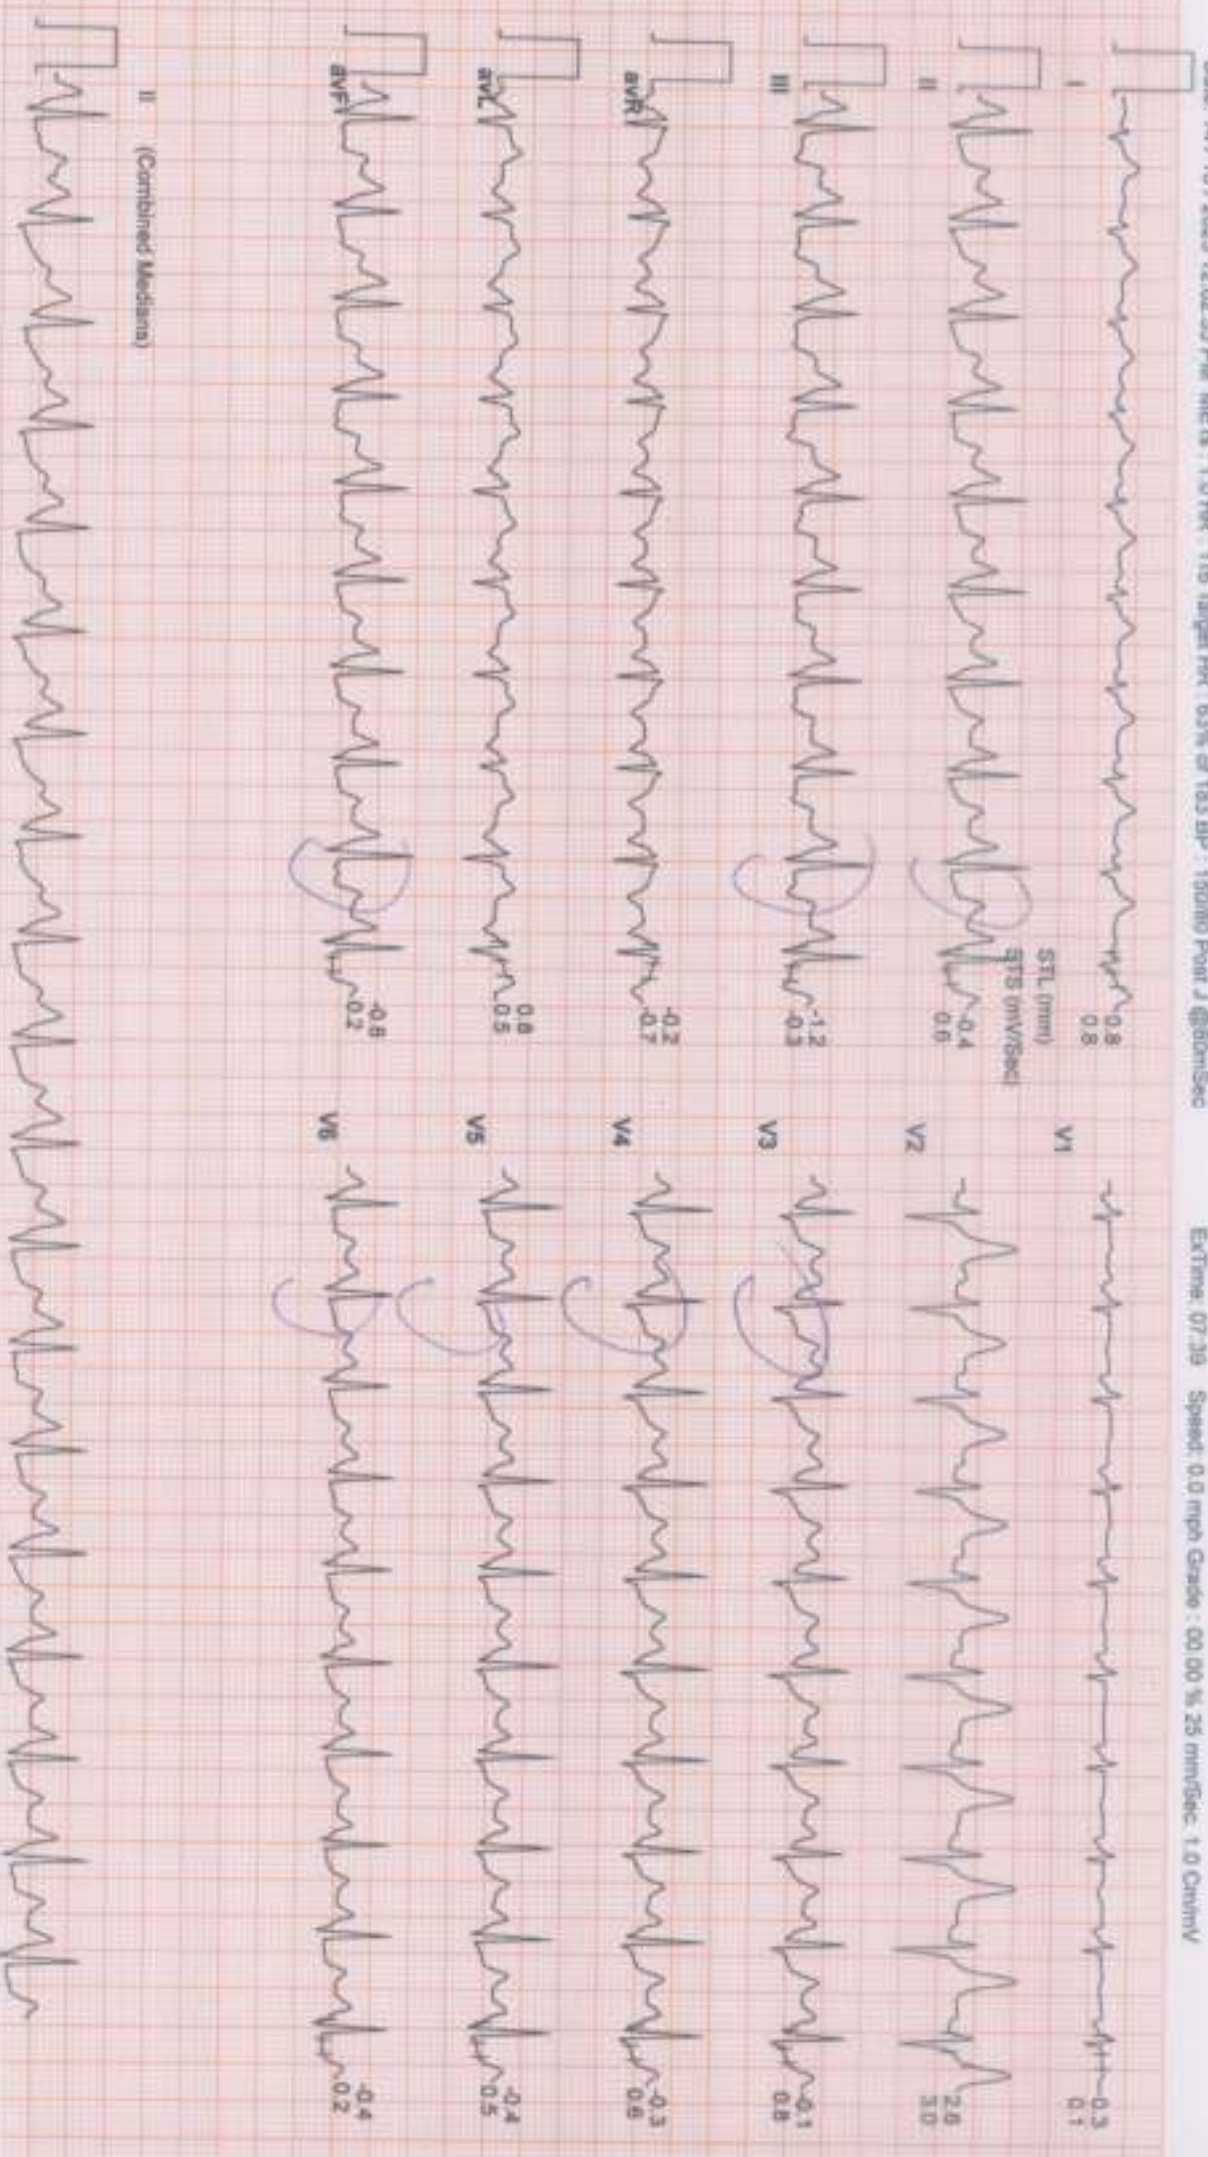 METs : 1.0 HR : 116 Target HR: 63% of 183 BP : 150/80 Post J @80mSec
ExTime: 07:39 Speed: 0.0 mph Grade : 00.00 % 25 mm/Sec. 1.0 Cm/mV
I
0.8
0.8
STL (mm)
STS (mV/Sec)
II
-0.4
0.6
III
-1.2
-0.3
avR
-0.2
-0.7
avL
0.8
0.5
avF
-0.8
0.2
V1
0.3
0.1
V2
2.6
3.0
V3
-0.1
0.8
V4
-0.3
0.6
V5
-0.4
0.5
V6
-0.4
0.2
II (Combined Medians)